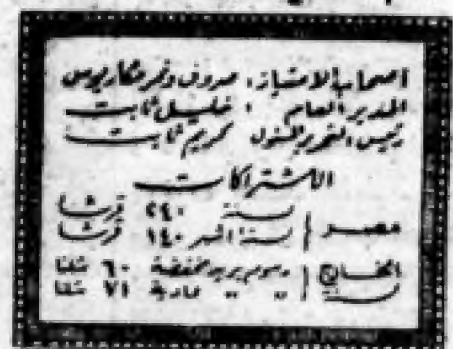 اصحاب الامتياز : صروف ونمر ومكاريوس
المدير العام : خليل ثابت
رئيس التحرير المسئول كريم ثابت
الاشتراكات
مصر سنة ٢٤٠ قرشا
ستة اشهر ١٤٠ قرشا
الخارج رسوم بريد مخفضة ٦٠ شلنا
سنة " " عادية ٧١ شلنا